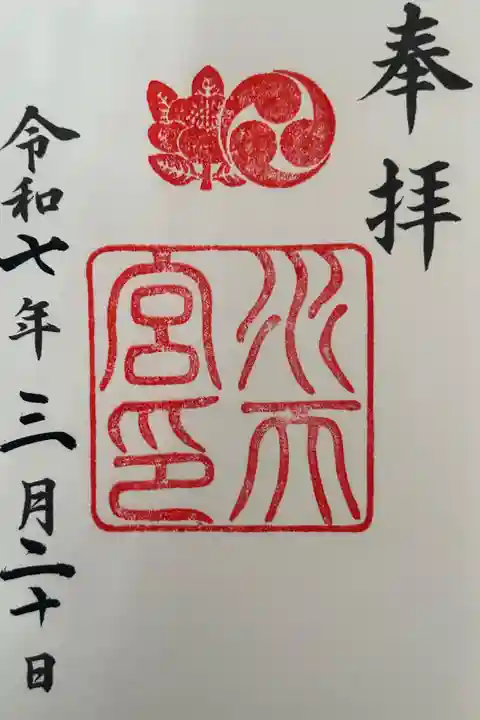 奉拝
水天
宮印
令和七年三月二十日